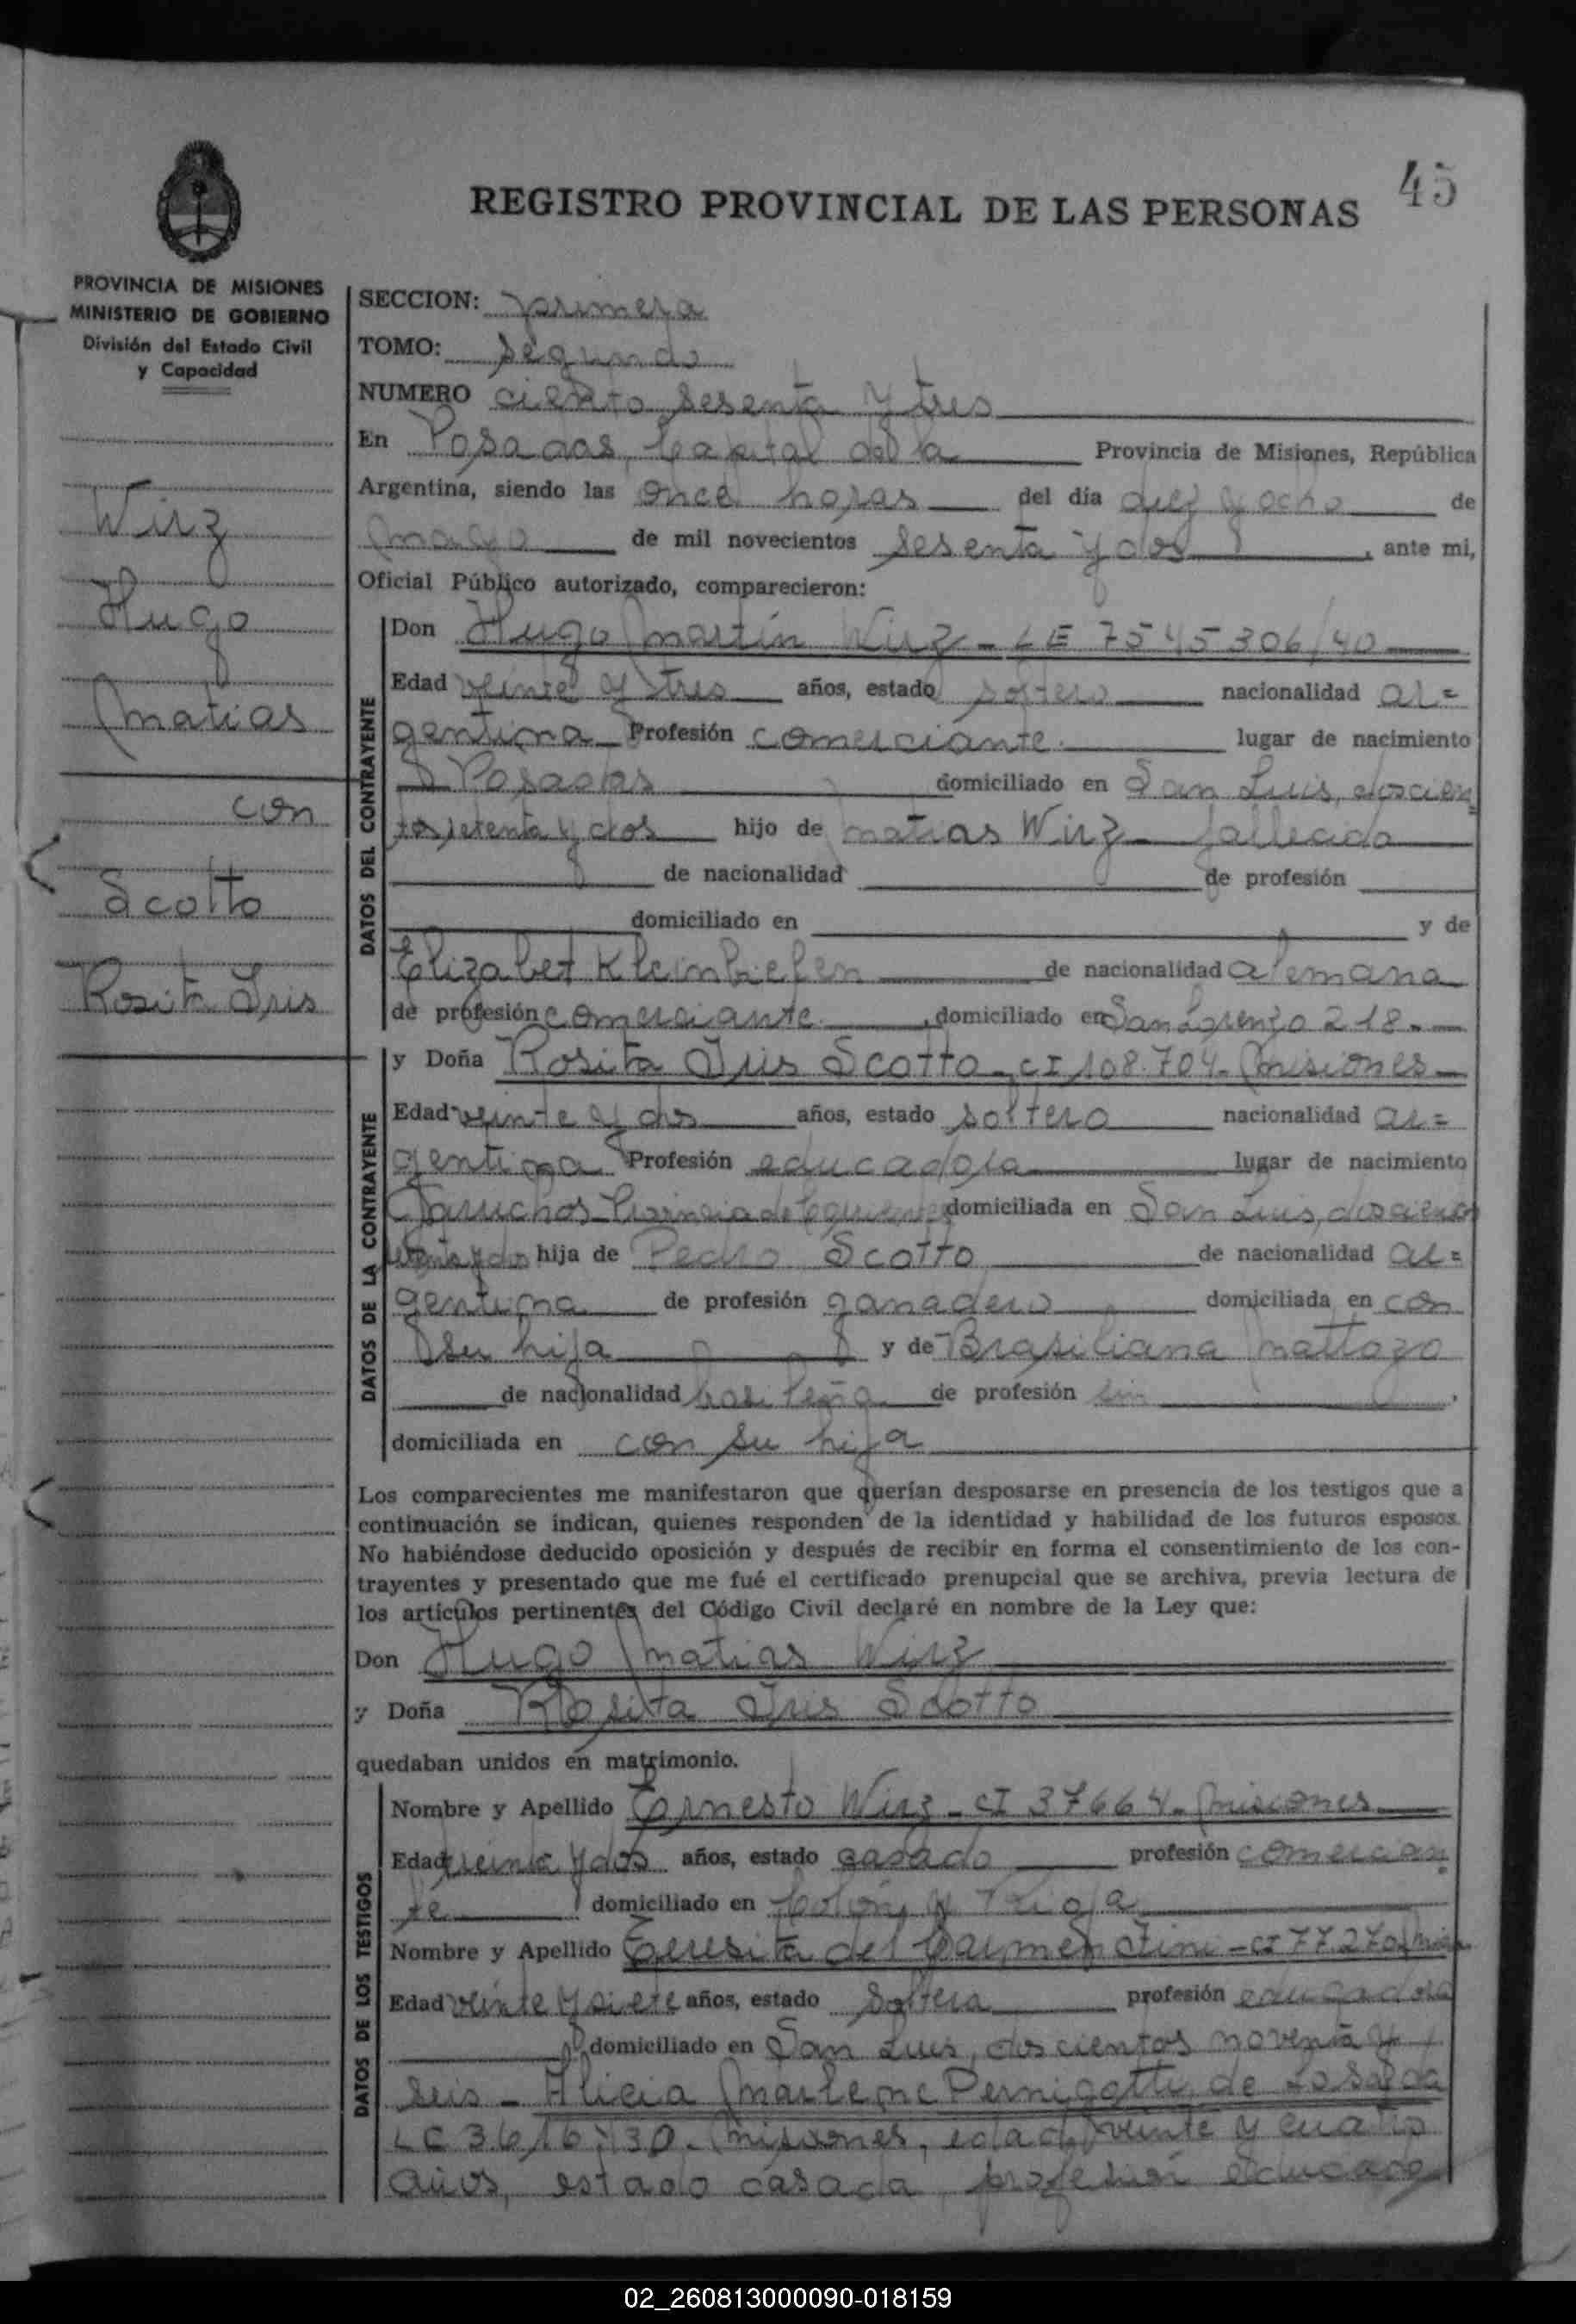 45
REGISTRO PROVINCIAL DE LAS PERSONAS
PROVINCIA DE MISIONES
MINISTERIO DE GOBIERNO
División del Estado Civil
y Capacidad
Wirz
Hugo
Matias
con
Scotto
Rosita Iris
SECCION: primera
TOMO: segundo
NUMERO ciento sesenta y tres
En Posadas, Capital de la Provincia de Misiones, República
Argentina, siendo las once horas del día diez y ocho de
mayo de mil novecientos sesenta y dos, ante mi,
Oficial Público autorizado, comparecieron:
DATOS DEL CONTRAYENTE
Don Hugo Martín Wirz - LE 7545306/40
Edad veinte y tres años, estado soltero nacionalidad ar=
gentina Profesión comerciante lugar de nacimiento
Posadas domiciliado en San Luis, doscien=
tos setenta y dos hijo de Matias Wirz fallecido
de nacionalidad de profesión
domiciliado en y de
Elizabet de nacionalidad alemana
de profesión comerciante, domiciliado en San Lorenzo 218.
DATOS DE LA CONTRAYENTE
y Doña Rosita Iris Scotto - CI 108.704 - Misiones
Edad veinte y dos años, estado soltero nacionalidad ar=
gentina Profesión educadora lugar de nacimiento
Garruchos - Provincia de Corrientes domiciliada en San Luis, doscientos
setenta y dos hija de Pedro Scotto de nacionalidad ar=
gentina de profesión ganadero domiciliada en con
su hija y de Brasiliana Mattozo
de nacionalidad brasileña de profesión sin
domiciliada en con su hija
Los comparecientes me manifestaron que querían desposarse en presencia de los testigos que a
continuación se indican, quienes responden de la identidad y habilidad de los futuros esposos.
No habiéndose deducido oposición y después de recibir en forma el consentimiento de los con-
trayentes y presentado que me fué el certificado prenupcial que se archiva, previa lectura de
los artículos pertinentes del Código Civil declaré en nombre de la Ley que:
Don Hugo Matias Wirz
y Doña Rosita Iris Scotto
quedaban unidos en matrimonio.
DATOS DE LOS TESTIGOS
Nombre y Apellido Ernesto Wirz - CI 37664 - Misiones
Edad treinta y dos años, estado casado profesión comercian=
te domiciliado en Colón y Rioja
Nombre y Apellido Teresita del Carmen Fini - CI 77.270
Edad veinte y siete años, estado soltera profesión educadora
domiciliado en San Luis, doscientos noventa y
seis - Alicia Marlene Pernigotti de Losada
LC Misiones, edad veinte y cuatro
años, estado casada, profesión
02_260813000090-018159